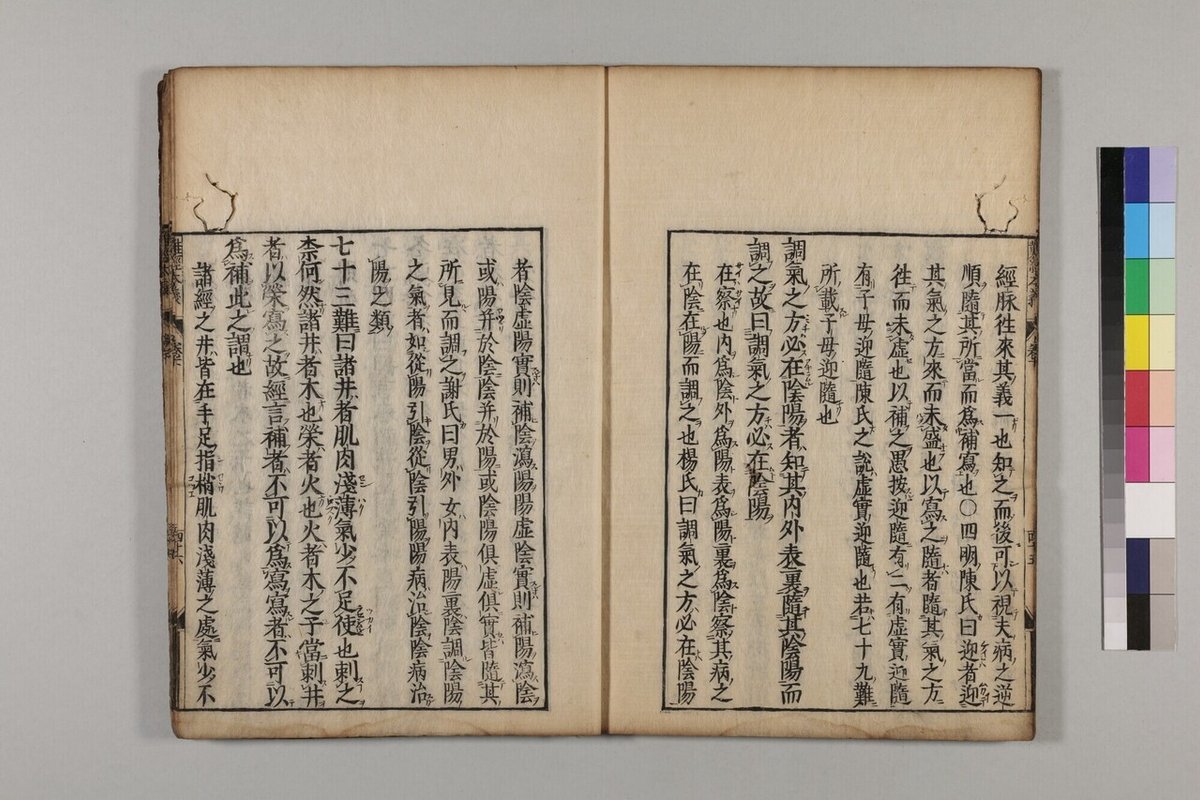 經脉徃來其義一也知之而後可以視夫病之逆
順隨其所當而爲補寫也○四明陳氏曰迎者迎
其氣之方來而未盛也以寫之隨者隨其氣之方
徃而未虚也以補之愚按迎隨有二有虚實迎隨
有子母迎隨陳氏之說虚實迎隨也若七十九難
所載子母迎隨也
調氣之方必在陰陽者知其内外表裏隨其陰陽而
調之故曰調氣之方必在陰陽
在察也内爲陰外爲陽表爲陽裏爲陰察其病之
在陰在陽而調之也楊氏曰調氣之方必在陰陽
者陰虚陽實則補陰瀉陽陽虚陰實則補陽瀉陰
或陽并於陰陰并於陽或陰陽俱虚俱實皆隨其
所見而調之謝氏曰男外女内表陽裏陰調陰陽
之氣者如從陽引陰從陰引陽陽病治陰陰病治
陽之類
七十三難曰諸井者肌肉淺薄氣少不足使也刺之
柰何然諸井者木也滎者火也火者木之子當刺井
者以滎寫之故經言補者不可以爲寫寫者不可以
爲補此之謂也
諸經之井皆在手足指梢肌肉淺薄之處氣少不